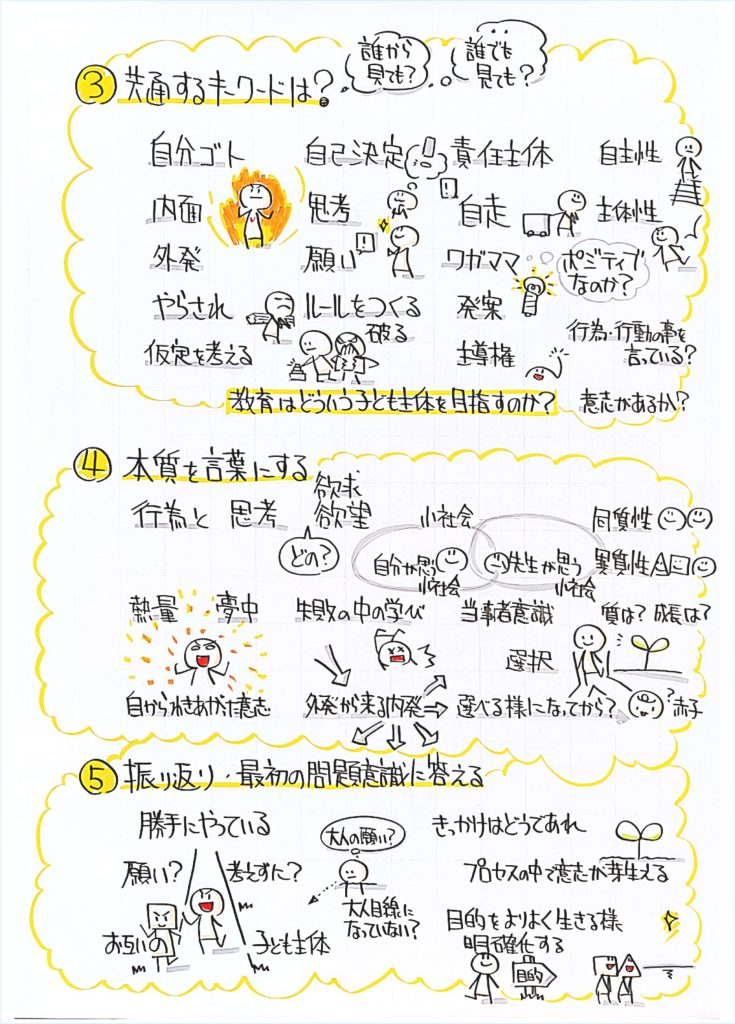 誰から
見ても？
誰でも
見ても？
③ 共通するキーワードは？
自分ゴト 自己決定 責任主体 自主性
内面 思考 自走 主体性
外発 願い ワガママ ポジティブ
なのか？
やらされ ルールをつくる 発案
破る
行為・行動の事を
言っている？
仮定を考える 主導権
教育はどういう子ども主体を目指すのか？ 意志があるか？
④ 本質を言葉にする
欲求
行為と 思考 欲望 小社会 同質性
どの？
自分が思う
小社会
先生が思う
小社会
異質性
熱量 夢中 失敗の中の学び 当事者意識 質は？ 成長は？
選択
自からわきあがった意志 外発から来る内発 ⇒ 選べる様になってから？ ？赤子
⑤ 振り返り・最初の問題意識に答える
勝手にやっている 大人の願い？ きっかけはどうであれ
願い？ 考えずに？ プロセスの中で意志が芽生える
大人目線に
なっていない？
お互いの 子ども主体
目的をよりよく生きる様
明確化する
目的